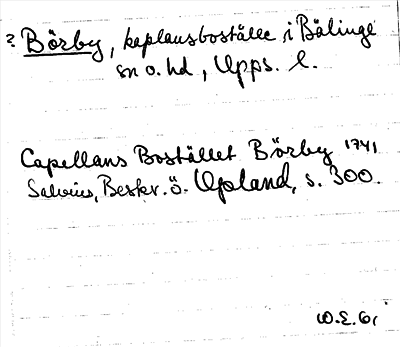 ? Börby, kaplansboställe i Bälinge
sn o. hd, Upps. l.
Capellans Bostället Börby 1741
Salvius, Beskr. ö. Upland, s. 300.
W.E.G,